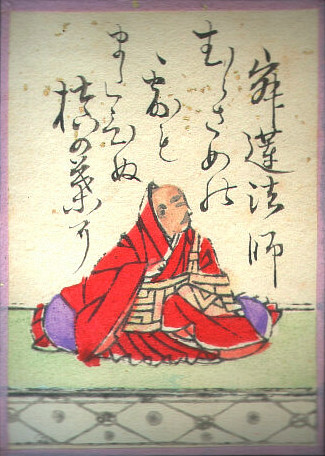 寂蓮法師
むらさめの
つゆも
まだひぬ
槙の葉に